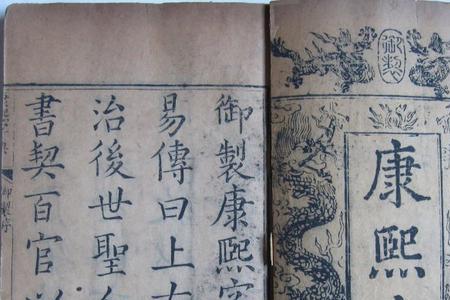 御製
康熙
御製康熙
易傳曰上
治後世聖
書契百官
御製序